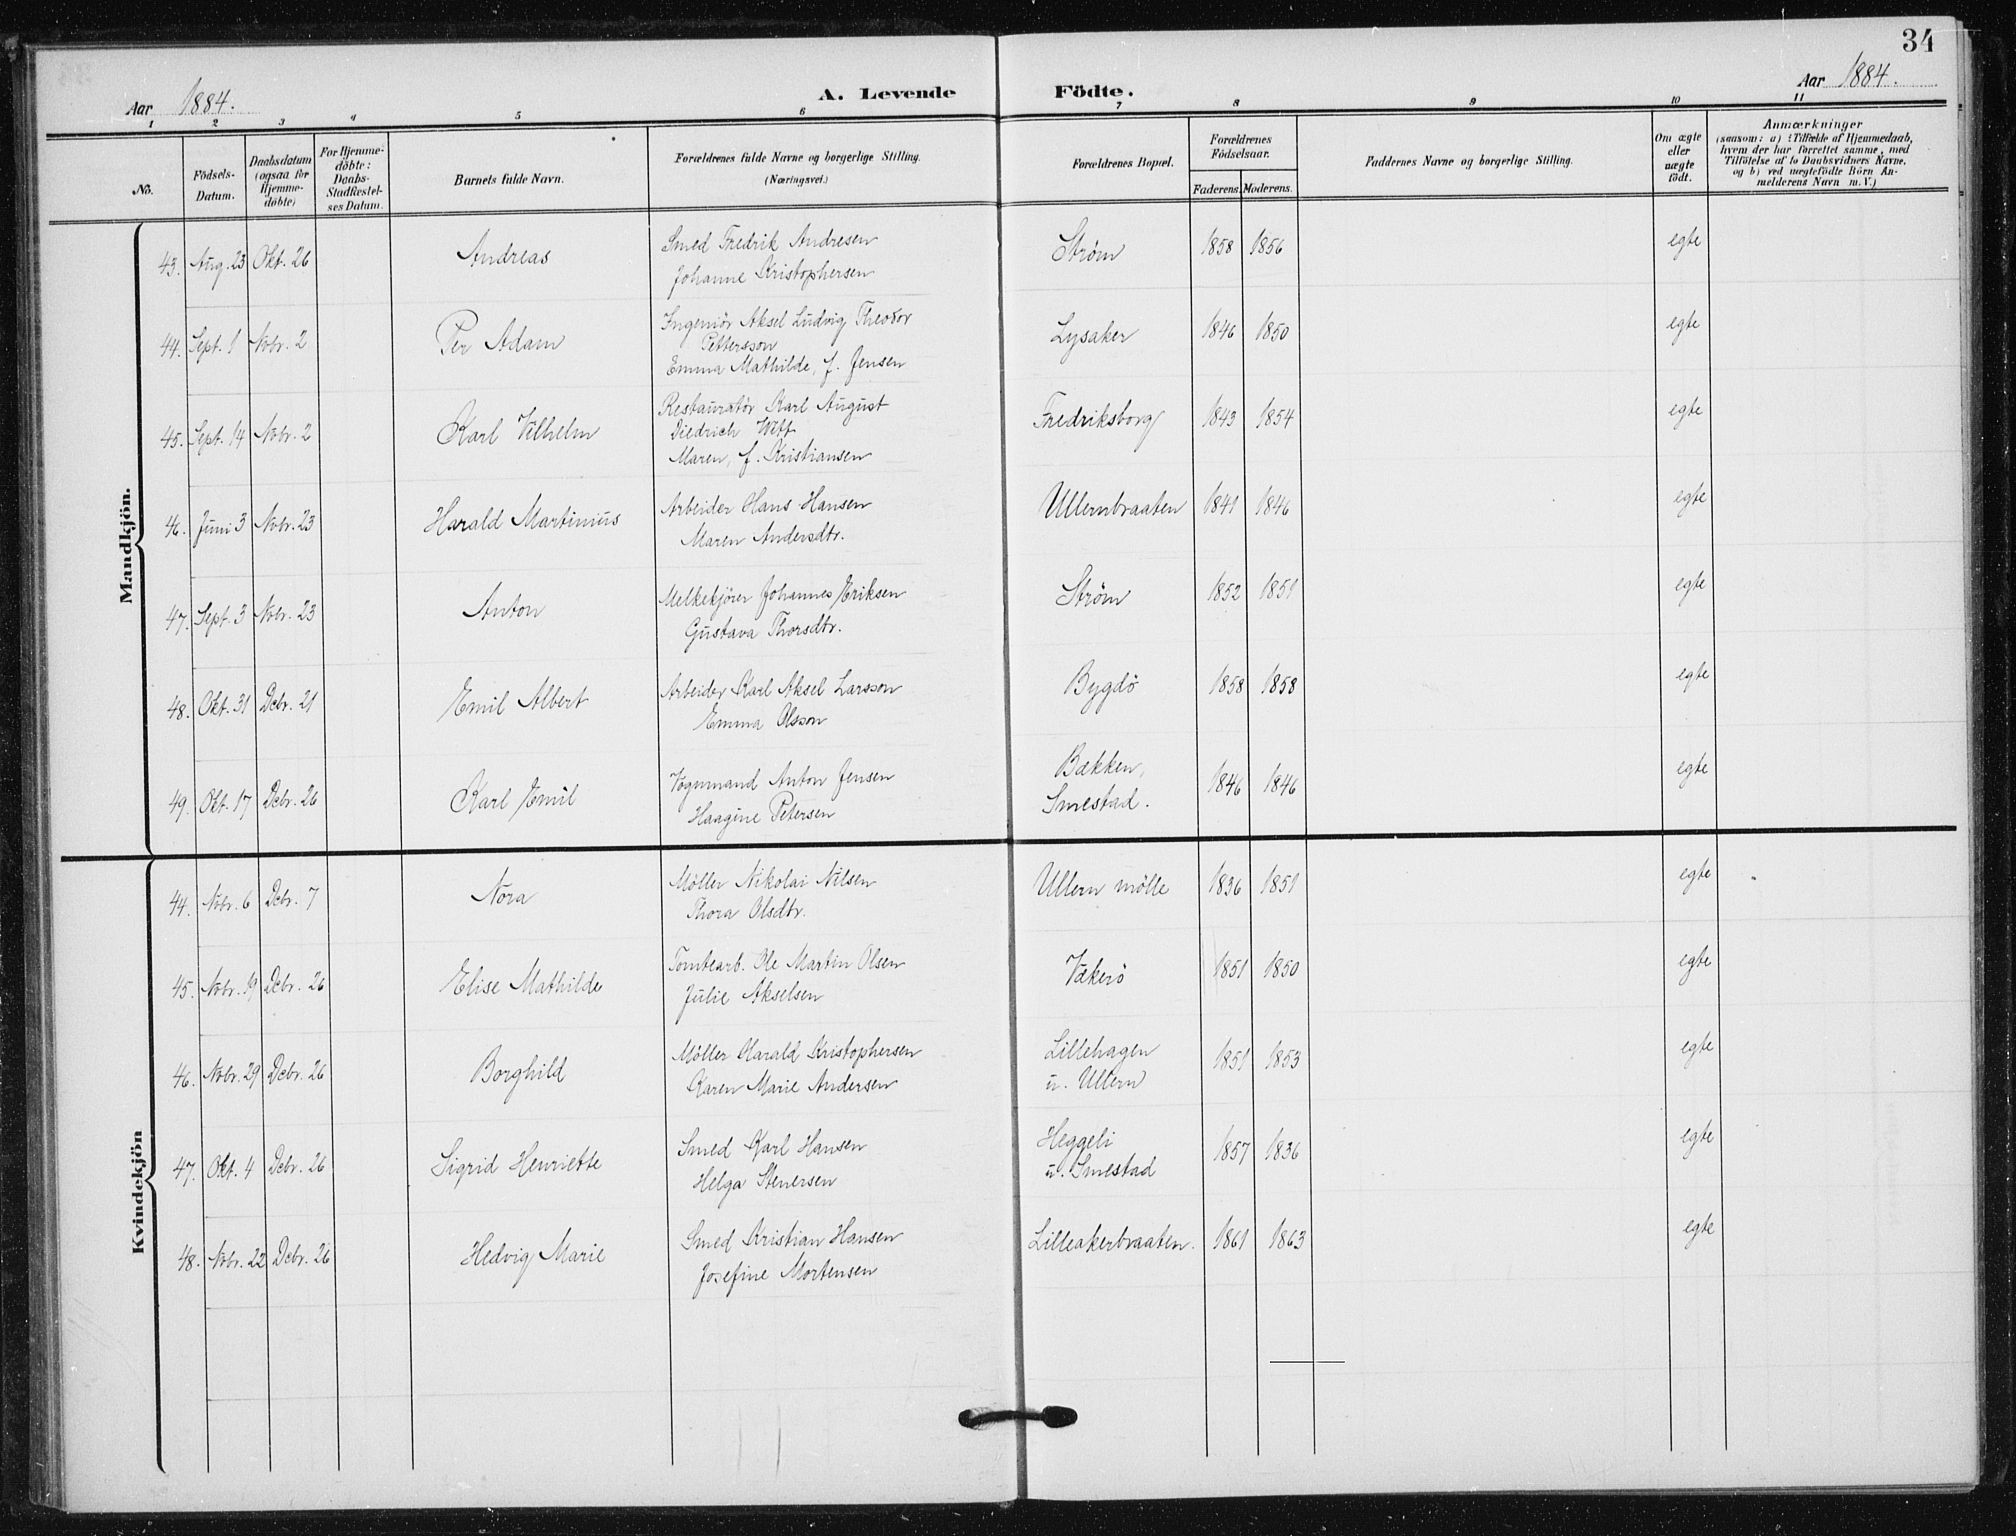 34
Aar 1884. A. Levende Födte. Aar 1884.
1 2 3 4 5 6 7 8 9 10 11
No.
Födsels-
Datum.
Daabsdatum
(ogsaa for
Hjemme-
döbte)
For Hjemme-
döbte:
Daabs-
Stadfæstel-
ses Datum.
Barnets fulde Navn.
Forældrenes fulde Navne og borgerlige Stilling.
(Næringsvei.)
Forældrenes Bopæl.
Forældrenes
Födselsaar.
Faderens. Moderens.
Faddernes Navne og borgerlige Stilling.
Om ægte
eller
uægte
födt.
Anmærkninger
(saasom: a) i Tilfælde af Hjemmedaab,
hvem der har forrettet samme, med
Tilföielse af to Daabsvidners Navne,
og b) ved uægtefödte Börn An-
melderens Navn m. V.)
Mandkjön.
43. Aug. 23 Okt. 26 Andreas Smed Fredrik Andresen Strøm 1858 1856 egte
Johanne Kristophersen
44. Sept. 1 Novbr. 2 Per Adam Ingeniör Aksel Ludvig Theodor Lysaker 1846 1850 egte
Pettersson
Emma Mathilde, f. Jensen
45. Sept. 14 Novbr. 2 Karl Vilhelm Restauratør Karl August Fredriksborg 1843 1854 egte
Diedrich Witt
Maren, f. Kristiansen
46. Juni 3 Novbr. 23 Harald Martinius Arbeider Hans Hansen Ullernbraaten 1841 1846 egte
Maren Andersdtr.
47. Sept. 3 Novbr. 23 Anton Melkekjörer Johannes Eriksen Strøm 1852 1851 egte
Gustava Thorsdtr.
48. Okt. 31 Dcbr. 21 Emil Albert Arbeider Karl Aksel Larsson Bygdö 1858 1858 egte
Emma Olsson
49. Okt. 17 Dcbr. 26 Karl Emil Vognmand Anton Jensen Bækken, 1846 1846 egte
Haagine Petersen Smestad.
Kvindekjön
44. Novbr. 6 Dcbr. 7 Nora Möller Nikolai Nilsen Ullern mölle 1836 1851 egte
Thora Olsdtr.
45. Novbr. 19 Dcbr. 26 Elise Mathilde Tomtearb. Ole Martin Olsen Vækerö 1851 1850 egte
Julie Akselsen
46. Novbr. 29 Dcbr. 26 Borghild Möller Harald Kristophersen Lillehagen 1851 1853 egte
Karen Marie Andersen u. Ullern
47. Okt. 4 Dcbr. 26 Sigrid Henriette Smed Karl Hansen Heggeli 1857 1836 egte
Helga Stenersen u. Smestad
48. Novbr. 22 Dcbr. 26 Hedvig Marie Smed Kristian Hansen Lilleakerbraaten. 1861 1863 egte
Josefine Mortensen